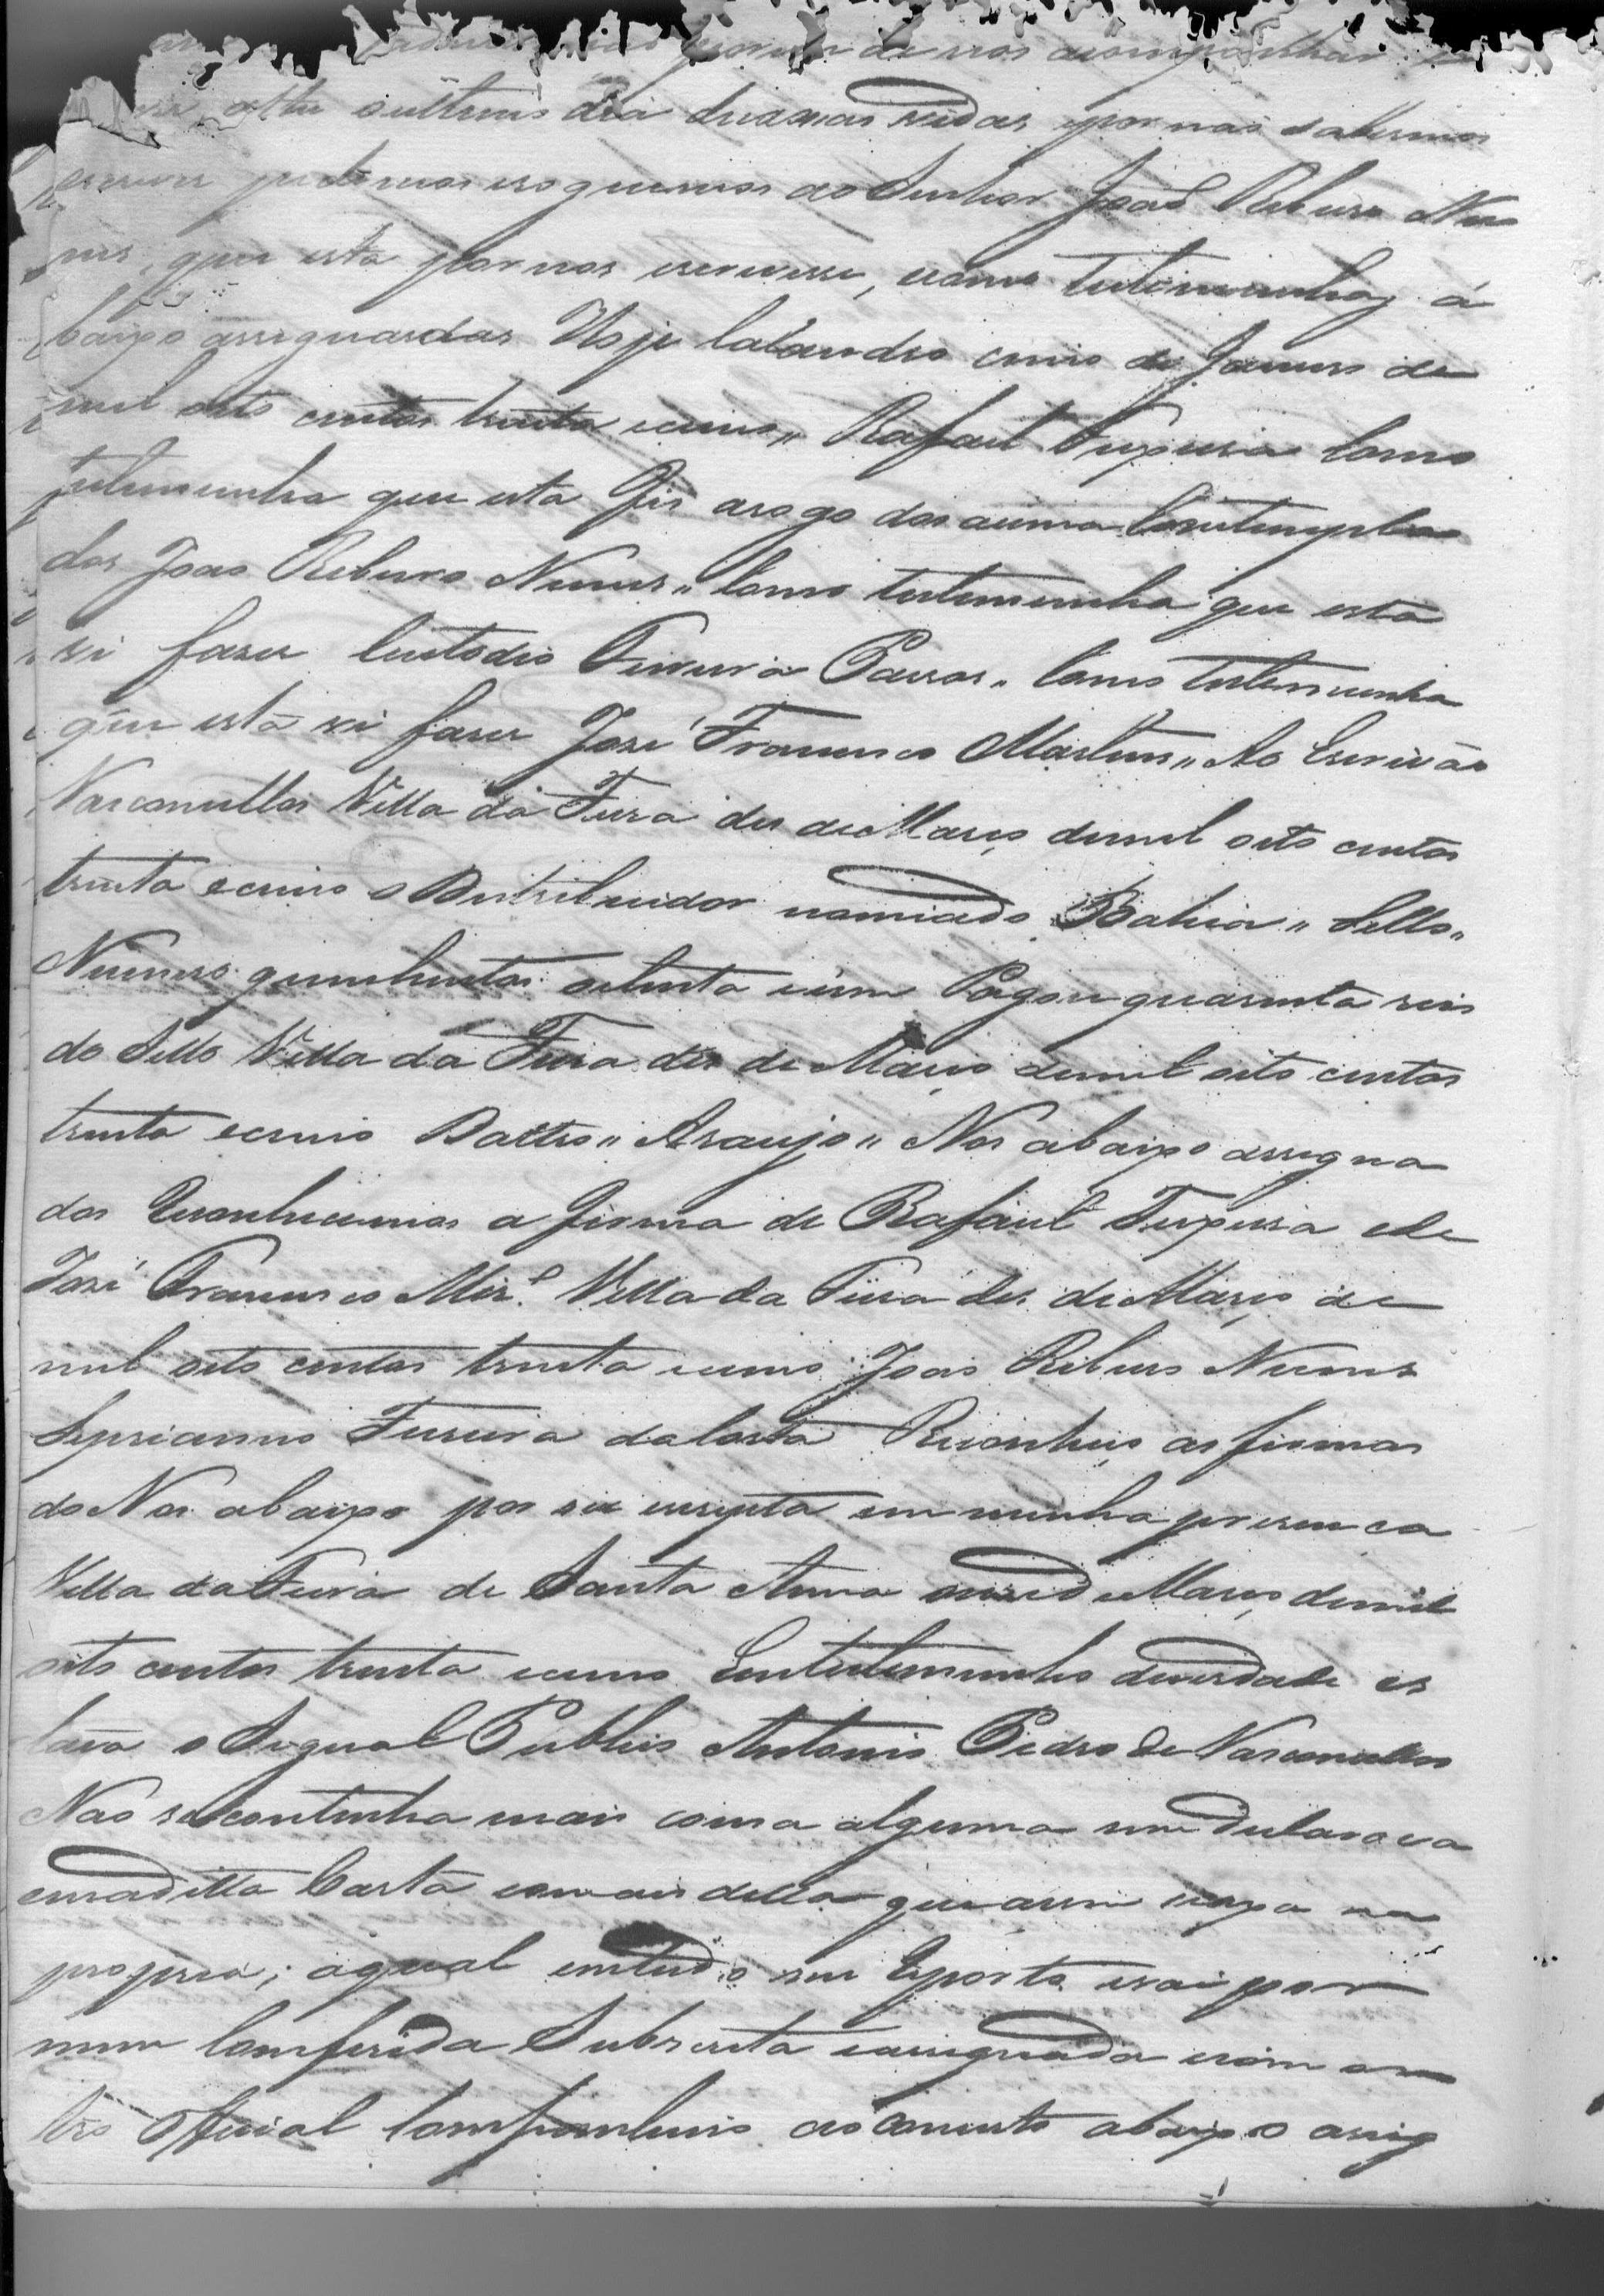 de nos acompanhar
athe oultimo dia denossas vidas epornaõ sabermos
escrever pedimos erogamos ao Senhor Joaõ Ribeiro Nu
nes, que esta por nos escrevesse, ecomo testimunhas á
baixo assignardas Hoje Calandro cinco de Janeiro de
mil oito centos trinta ecinco,, Rafael Teixeira Como
testemunha que esta fis arogo dos acima Contempla
dos Joaõ Ribeiro Nunes,, Como testemunha que esta
vi faser Custodio Ferreira Passos,, Como testemunha
que esta vi faser José Francisco Martins,, Ao Escrivaõ
Vasconsellos Villa da Feira des de Março demil oito centos
trinta ecinco o Destribuidor nomiado Bahia,, Sello,,
Numero quinhentos setenta eum Pagou quarenta reis
do Sello Villa da Feira des de Março demil oito centos
trinta ecinco Dattro,, Araujo,, Nos abaixo assigna
dos Reconhecemos a firma de Rafael Teixeira ede
José Francisco Miz. Villa da Feira des de Março de
mil oito centos trinta ecinco Joaõ Ribeiro Nunes
Syprianno Ferreira daCosta Reconheço as firmas
do Nos abaixo por ser escripta em minha presenca
Villa daFeira de Santa Anna onze de Março demil
oito centos trinta ecinco Emtestemunho deverdade es
tava o Signal Publico Antonio Pedro de Vasconsellos
Naõ se continha mais coisa alguma nem declarava
emaditta Carta emais della que assim
propria; aqual emtudo me Reporto evai por
mim Conferida Subscrita eassignada ecom ou
tro Official Companheiro ao Concerto abaixo assig